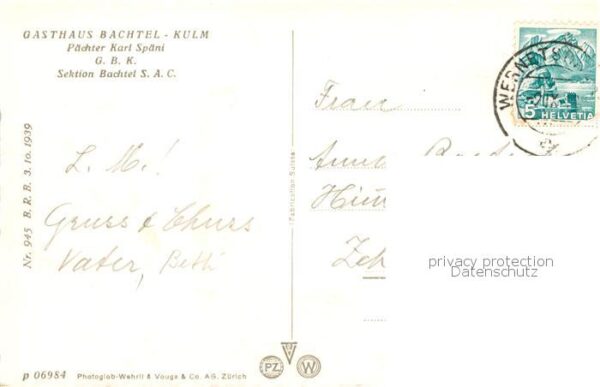 GASTHAUS BACHTEL - KULM
Pächter Karl Späni
G. B. K.
Sektion Bachtel S. A. C.
Nr. 945 B. R. B. 3. 10. 1939
L. M.!
Gruss & Chuss
Vater, Betti
p 06984 Photoglob-Wehrli & Vouga & Co. AG. Zürich
Fabrication Suisse
PZ W
5 HELVETIA
Frau
privacy protection
Datenschutz